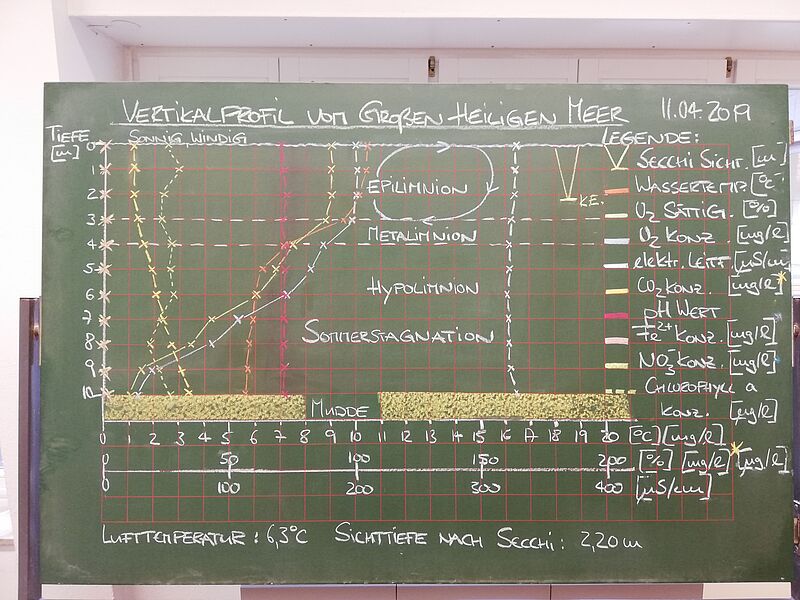 VERTIKALPROFIL VOM GROßEN HEILIGEN MEER 11.04.2019
TIEFE [m]
SONNIG WINDIG
LEGENDE:
0
1
2
3
4
5
6
7
8
9
10
EPILIMNION
METALIMNION
HYPOLIMNION
SOMMERSTAGNATION
K.E.
SECCHI SICHT. [m]
WASSERTEMP. [°C]
O2 SÄTTIG. [%]
O2 KONZ. [mg/l]
elektr. LEITF. [µS/cm]
CO2 KONZ. [mg/l]*
pH WERT
Fe2+ KONZ. [mg/l]
NO3- KONZ. [mg/l]
CHLOROPHYLL a
KONZ. [µg/l]
MUDDE
0 1 2 3 4 5 6 7 8 9 10 11 12 13 14 15 16 17 18 19 20 [°C] [mg/l]
0 50 100 150 200 [%] [mg/l]* [µg/l]
0 100 200 300 400 [µS/cm]
LUFTTEMPERATUR: 6,3°C SICHTTIEFE NACH SECCHI: 2,20 m